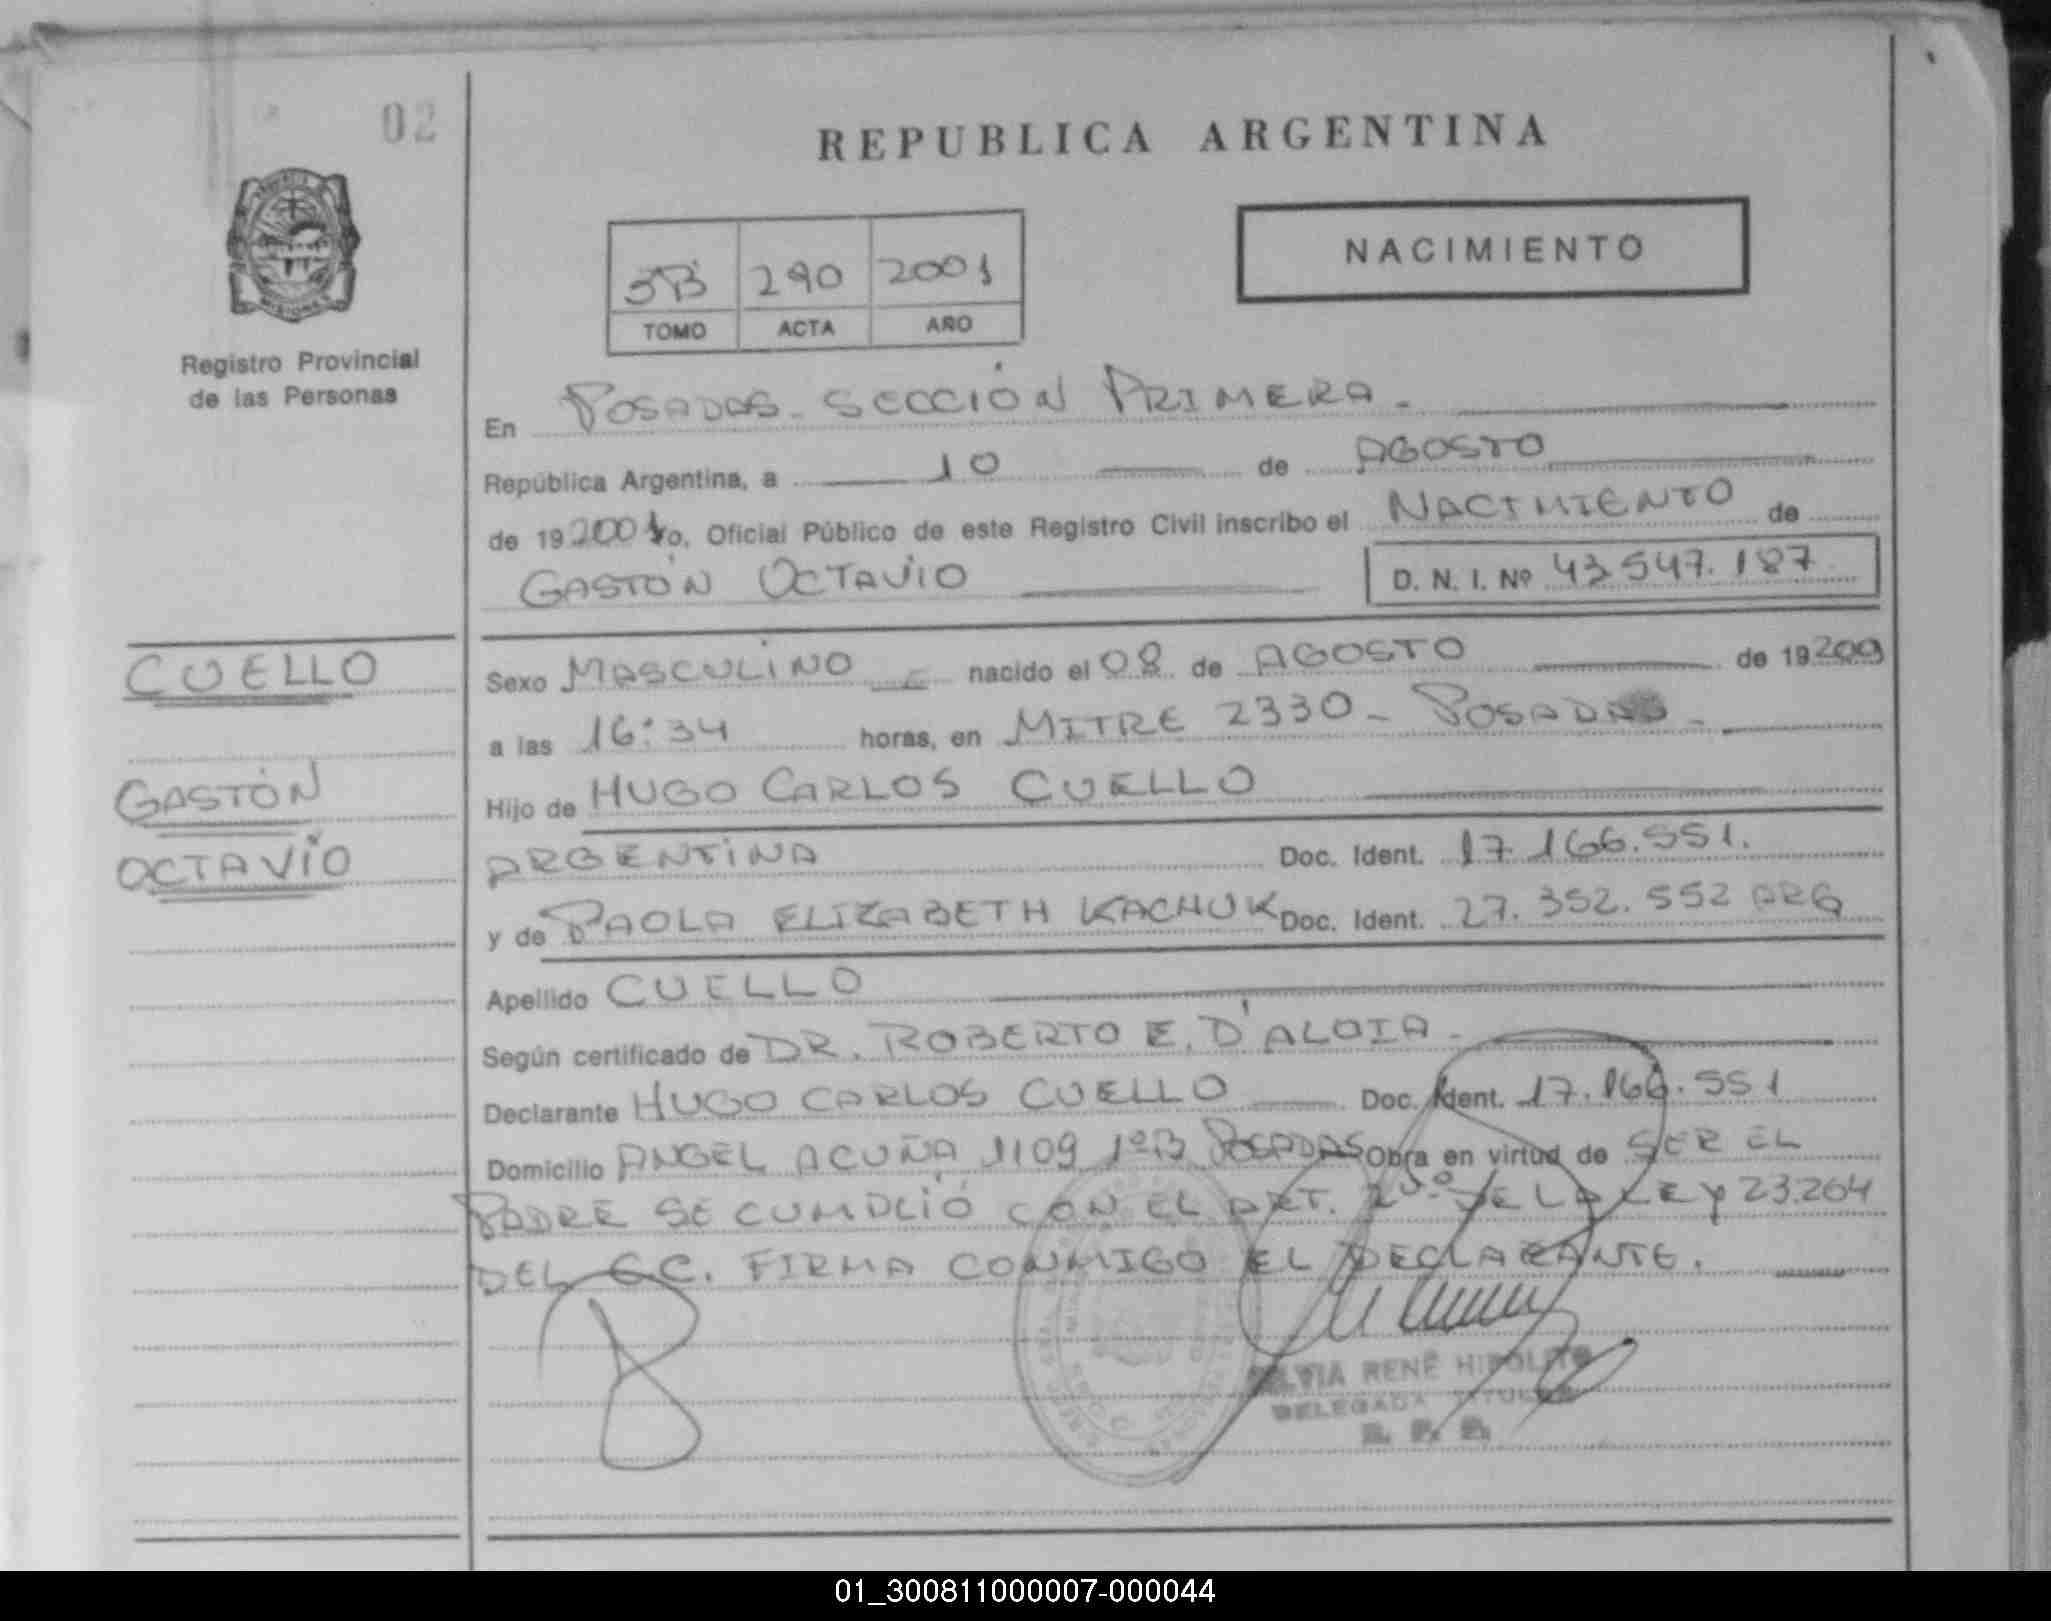 02
REPUBLICA ARGENTINA
NACIMIENTO
3B 290 2001
TOMO ACTA AÑO
Registro Provincial
de las Personas
En POSADAS - SECCIÓN PRIMERA -
República Argentina, a 10 de AGOSTO
de 19 2001 yo, Oficial Público de este Registro Civil inscribo el NACIMIENTO de
GASTÓN OCTAVIO D. N. I. Nº 43.547.187
CUELLO
Sexo MASCULINO nacido el 08 de AGOSTO de 19 2001
a las 16:34 horas, en MITRE 2330 - POSADAS -
GASTÓN
Hijo de HUGO CARLOS CUELLO
OCTAVIO
ARGENTINA Doc. Ident. 17.166.551.
y de PAOLA ELIZABETH KACHUK Doc. Ident. 27.352.552 ARG
Apellido CUELLO
Según certificado de DR. ROBERTO E. D'ALOIA -
Declarante HUGO CARLOS CUELLO Doc. Ident. 17.166.551
Domicilio ANGEL ACUÑA 1109 1º B POSADAS Obra en virtud de SER EL
PADRE SE CUMPLIÓ CON EL ART. 2º DE LA LEY 23.264
DEL C.C. FIRMA CONMIGO EL DECLARANTE.
SILVIA RENÉ HIPÓLITO
DELEGADA TITULAR
R. P. P.
01_300811000007-000044